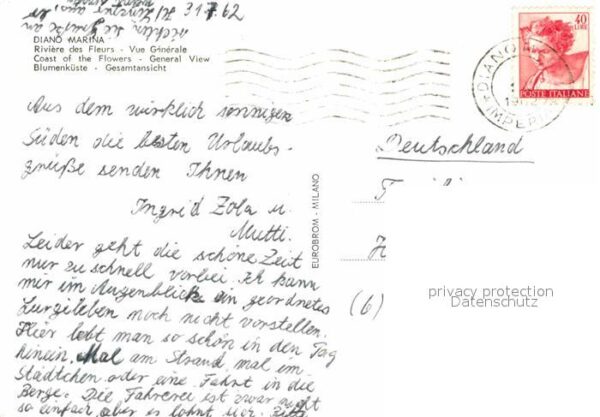 31.7.62
DIANO MARINA
Rivière des Fleurs - Vue Générale
Coast of the Flowers - General View
Blumenküste - Gesamtansicht
40
LIRE
POSTE ITALIANE
DIANO
IMPERIA
Aus dem wirklich sonnigen
Süden die besten Urlaubs-
grüße senden Ihnen
Ingrid Zola u.
Mutti.
Deutschland
EUROBROM - MILANO
Leider geht die schöne Zeit
nur zu schnell vorbei. Ich kann
mir im Augenblick ein geordnetes
noch nicht vorstellen.
Hier lebt man so schön in den Tag
hinein. Mal am Strand, mal im
Städtchen oder eine Fahrt in die
Berge. Die Fahrerei ist zwar nicht
so einfach, aber es lohnt sich. Bitte
(6)
privacy protection
Datenschutz